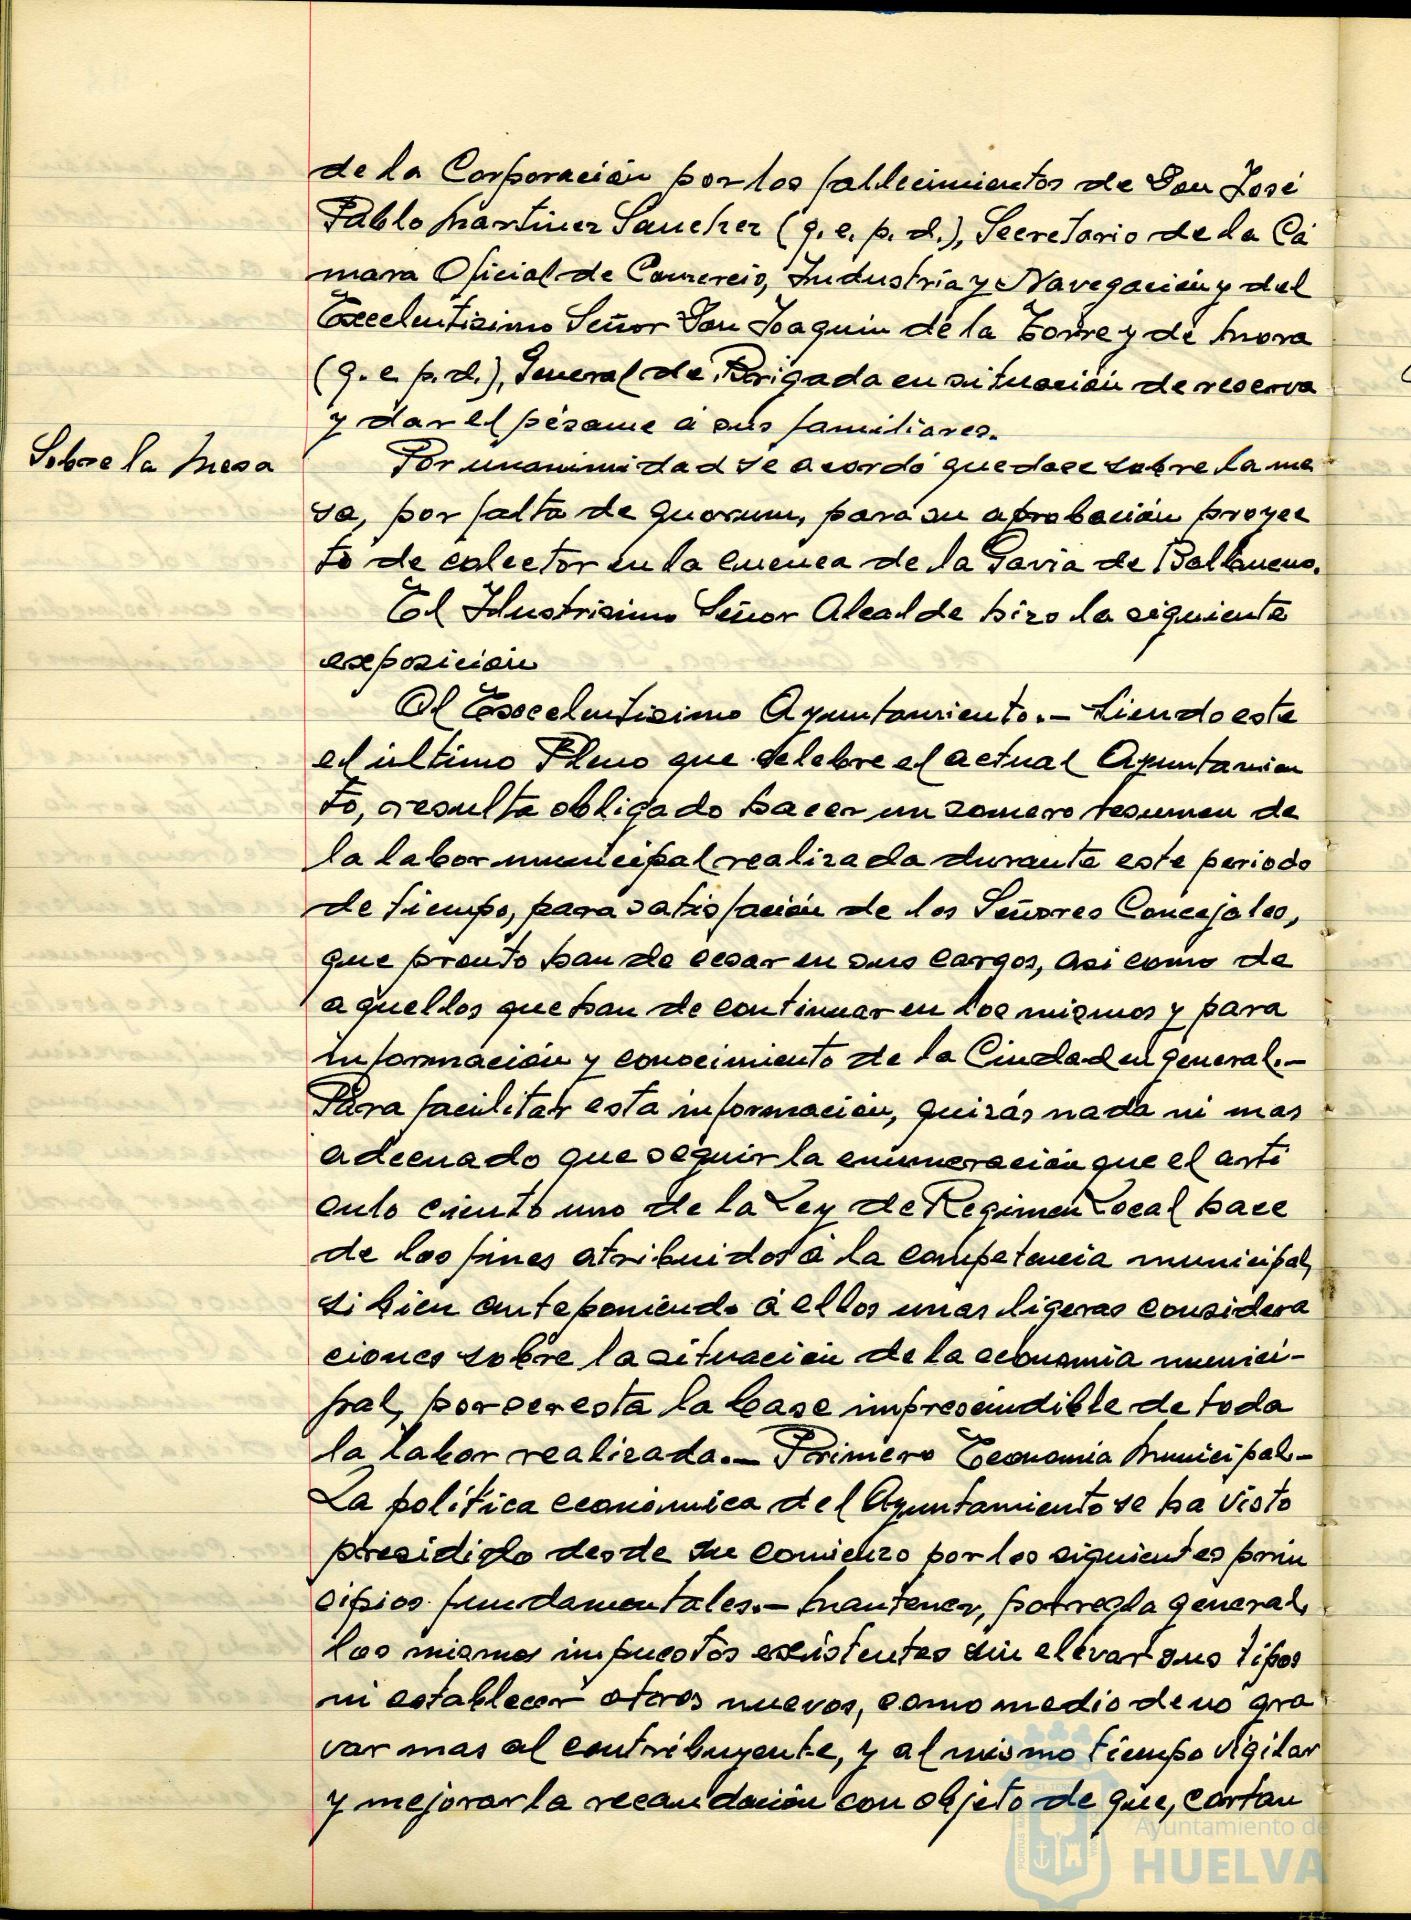 de la Corporación por los fallecimientos de Don José
Pablo Martinez Sanchez (q. e. p. d.), Secretario de la Cá
mara Oficial de Comercio, Industria y Navegación y del
Excelentisimo Señor Don Joaquin de la Torre y de Mora
(q. e. p. d.), General de Brigada en situación de reserva
y dar el pésame á sus familiares.
Sobre la Mesa
Por unanimidad se acordó quedase sobre la me
sa, por falta de quorum, para su aprobación proyec
to de colector en la cuenca de la Gavia de Balbueno.
El Ilustrisimo Señor Alcalde hizo la siguiente
exposición
Al Excelentisimo Ayuntamiento.- Siendo este
el último Pleno que celebre el actual Ayuntamien
to, resulta obligado hacer un somero resumen de
la labor municipal realizada durante este periodo
de tiempo, para satisfación de los Señores Concejales,
que pronto han de cesar en sus cargos, asi como de
aquellos que han de continuar en los mismos y para
información y conocimiento de la Ciudad en general.-
Para facilitar esta información, quizás nada ni mas
adecuado que seguir la enumeración que el arti
culo ciento uno de la Ley de Regimen Local hace
de los fines atribuidos á la competencia municipal,
si bien anteponiendo á ellos unas ligeras considera
ciones sobre la situación de la economia munici-
pal, por ser esta la base imprescindible de toda
la labor realizada.- Primero Economia Municipal.-
La política económica del Ayuntamiento se ha visto
presidida desde su comienzo por los siguientes prin
cipios fundamentales.- Mantener, por regla general,
los mismos impuestos existentes sin elevar sus tipos
ni establecer otros nuevos, como medio de no gra
var mas al contribuyente, y al mismo tiempo vigilar
y mejorar la recaudación con objeto de que, cortan
Ayuntamiento de
HUELVA